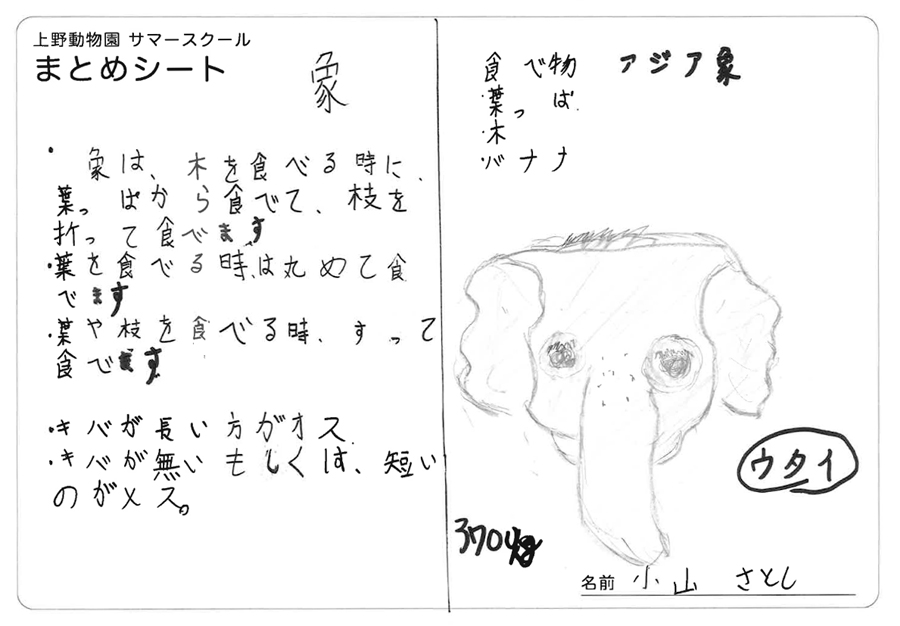 上野動物園 サマースクール
まとめシート
象
・象は、木を食べる時に、
葉っぱから食べて、枝を
折って食べます
・葉を食べる時は丸めて食
べます
・葉や枝を食べる時、すって
食べます
・キバが長い方がオス
・キバが無いもしくは、短い
のがメス。
食べ物
・葉っぱ
・木
・バナナ
アジア象
ウタイ
名前 小山 さとし